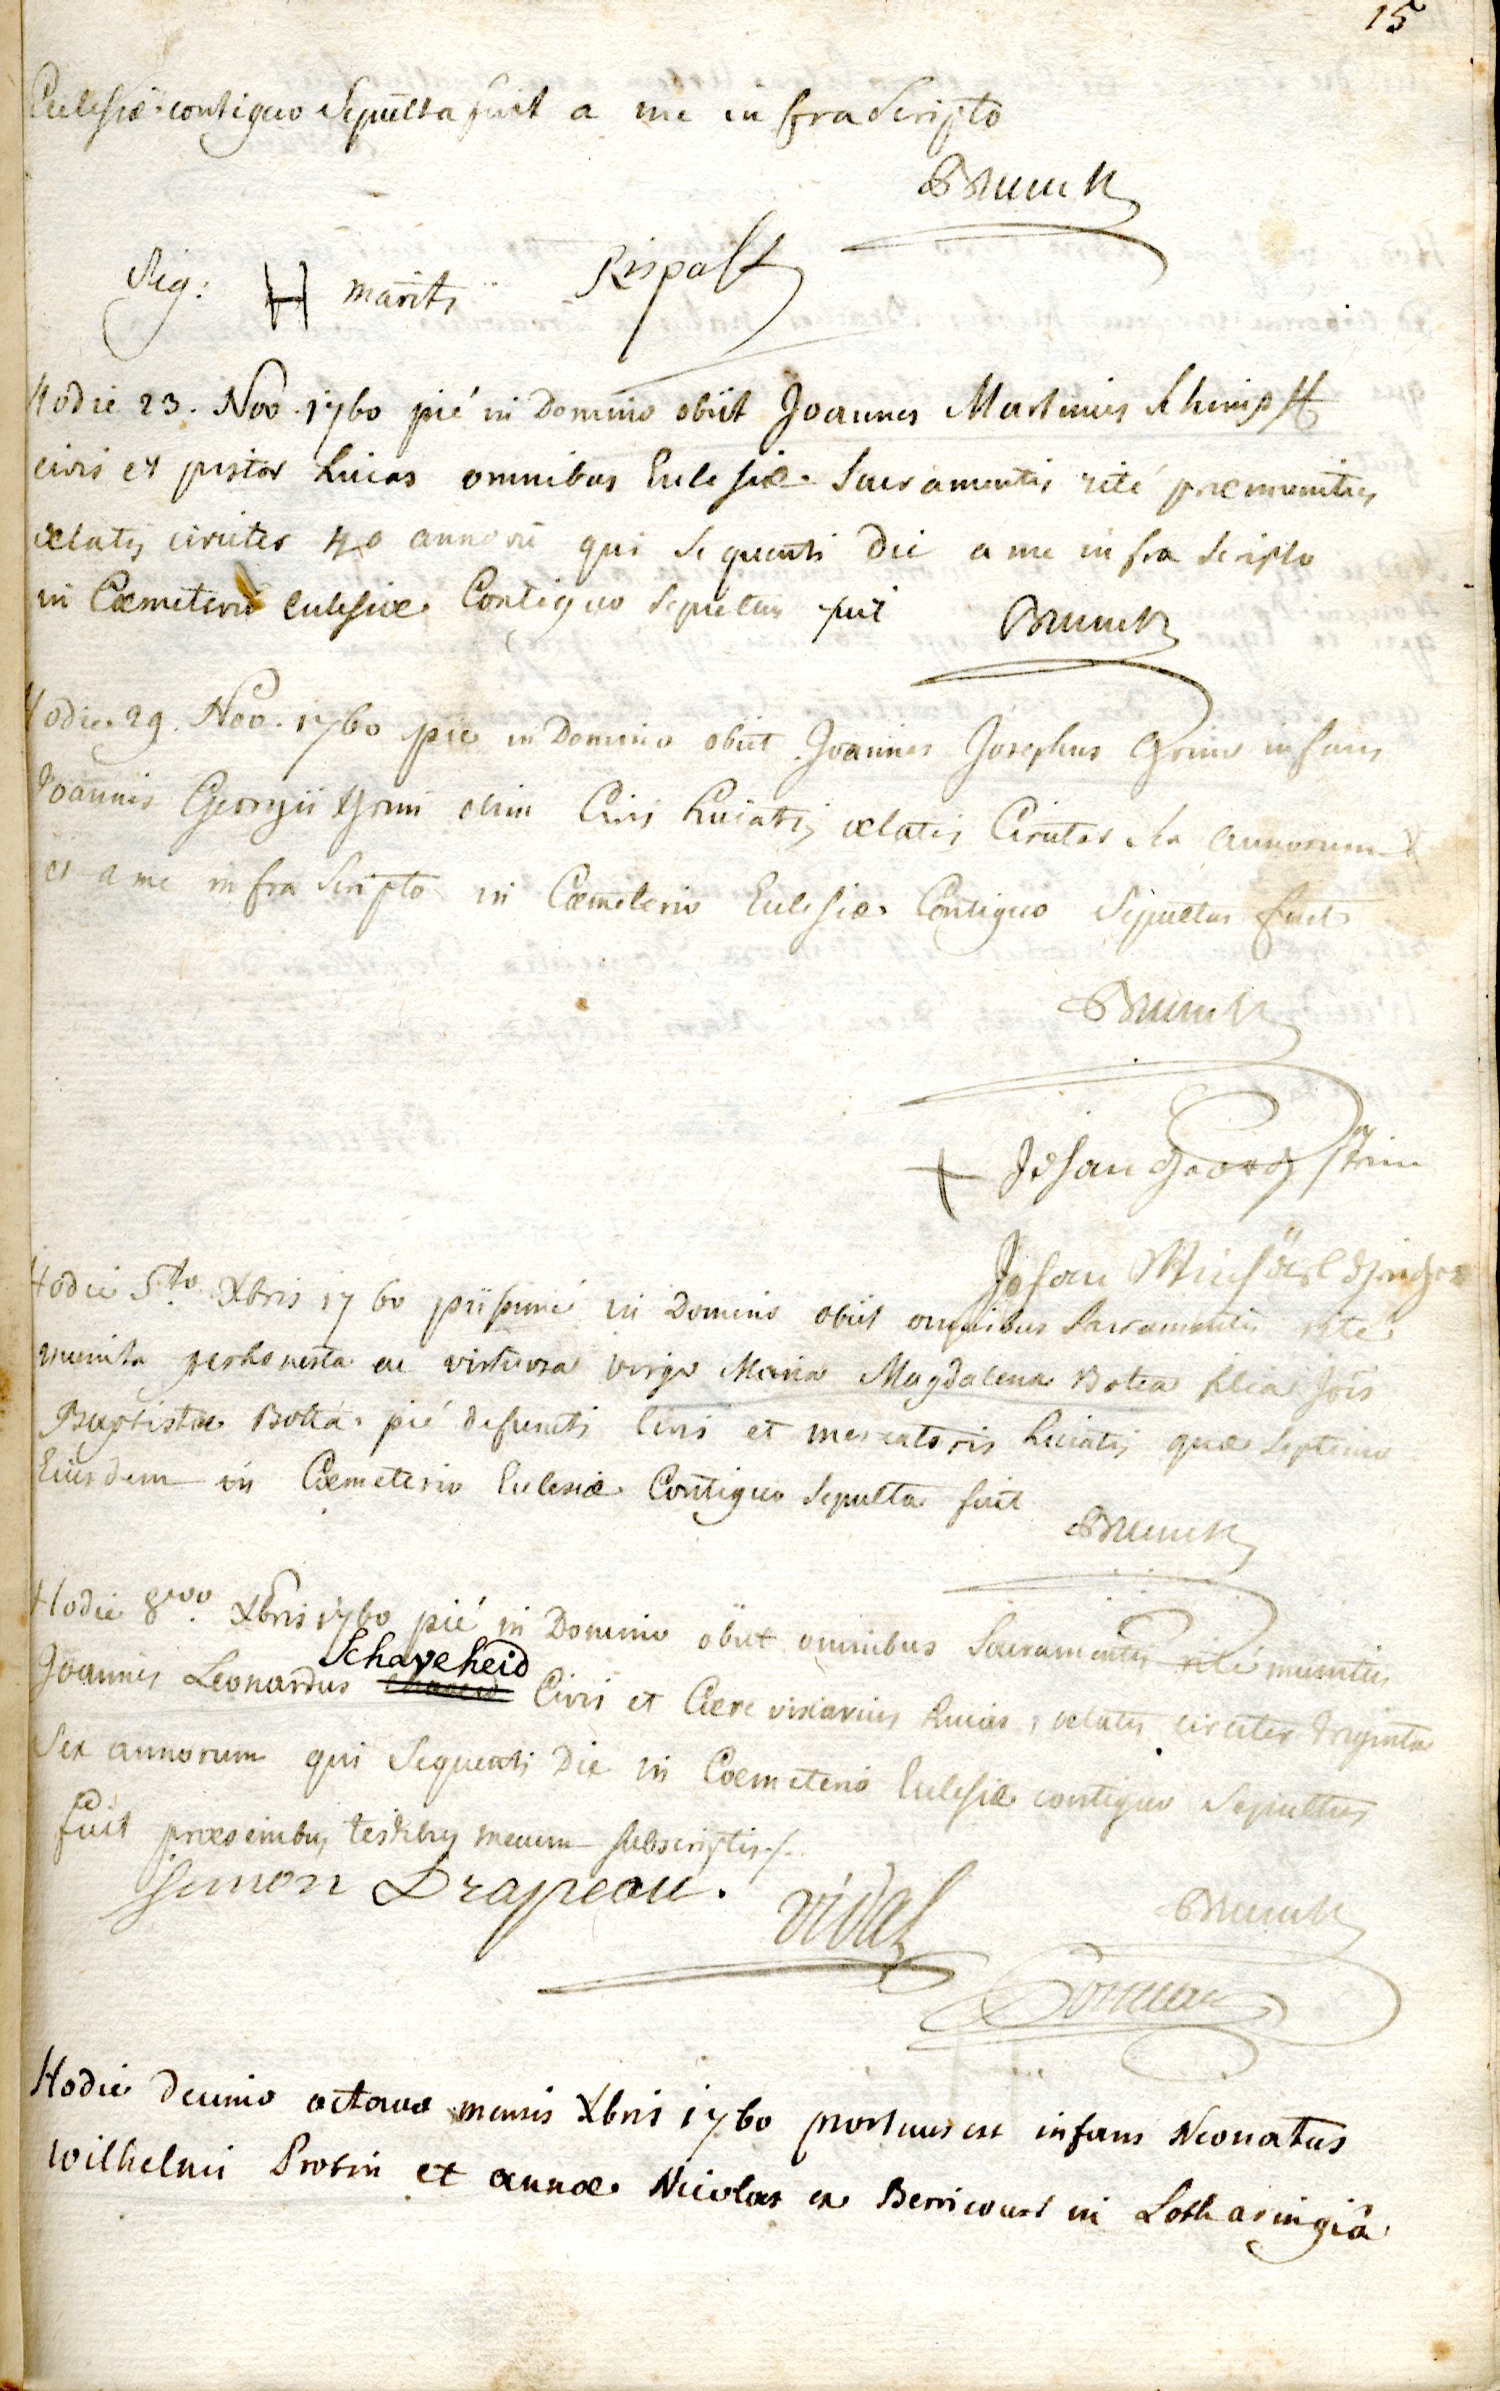 15
Ecclesiæ contiguo Sepulta fuit a me infra Scripto
Brunck
Sig: H mariti Rispalt
Hodie 23. Nov. 1760 pié in Domino obiit Joannes Martinus Schimpff
civis et pistor huias omnibus Ecclesiæ Sacramentis rité præmunitus
ætatis circiter 40 annorū qui Sequenti Die a me infra Scripto
in Cœmeterio Ecclesiæ Contiguo Sepultus fuit Brunck
Hodie 29. Nov. 1760 pie in Domino obiit Joannes Josephus Grim infans
Joannis Georgii Grim olim Civis huiatis ætatis Circiter Sex annorum
et a me infra Scripto in Cœmeterio Ecclesiæ Contiguo Sepultus fuit
Brunck
+ Johan Georg
Johan
Hodie 5to Xbris 1760 piissimé in Domino obiit omnibus Sacramentis rité
munita perhonesta ac virtuosa virgo Maria Magdalena Botea filia Jois
Baptistæ Botea pié defuncti Civis et mercatoris huiatis quæ Septimo
Eiusdem in Cœmeterio Ecclesiæ Contiguo Sepulta fuit Brunck
Hodie 8vo Xbris 1760 pié in Domino obiit omnibus Sacramentis rité munitus
Schaveheid
Joannes Leonardus Civis et Cerevisiarius huias, ætatis circiter triginta
Sex annorum qui Sequenti Die in Coemeterio Ecclesiæ contiguo Sepultus
fuit præsentibus testibus mecum subscriptis
Simon Drapeau. Vidal Brunck
Hodie decimo octavo mensis Xbris 1760 mortuus est infans Neonatus
Wilhelmi Protin et annæ Nicolas ex Berricourt in Lotharingiâ